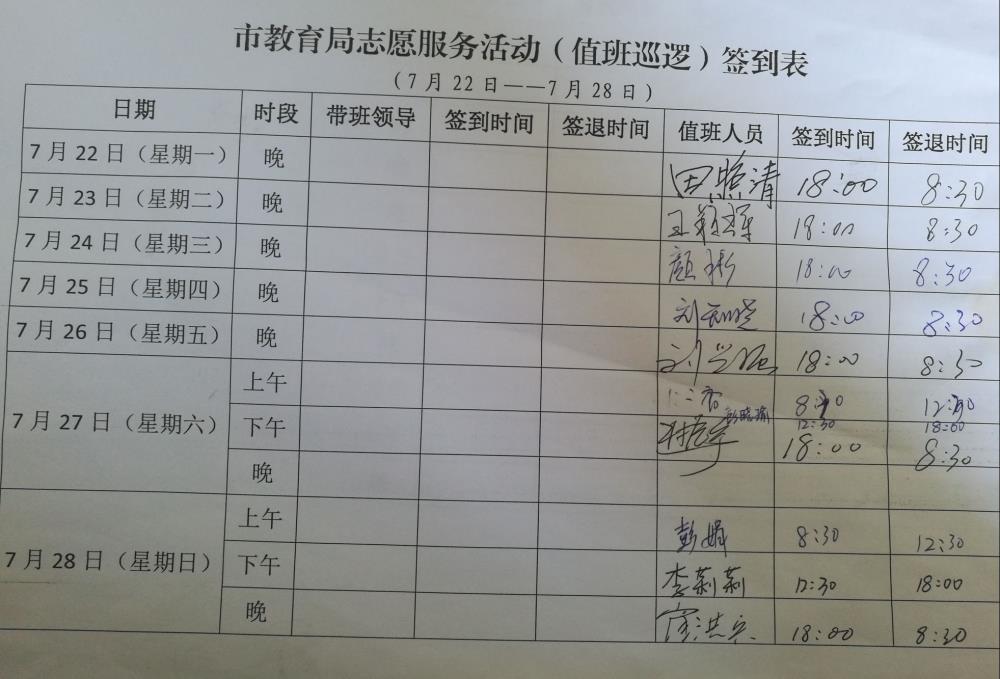 市教育局志愿服务活动（值班巡逻）签到表
（7月22日——7月28日）
日期 时段 带班领导 签到时间 签退时间 值班人员 签到时间 签退时间
7月22日（星期一） 晚 田照清 18:00 8:30
7月23日（星期二） 晚 18:00 8:30
7月24日（星期三） 晚 颜彬 18:00 8:30
7月25日（星期四） 晚 18:00 8:30
7月26日（星期五） 晚 18:00 8:30
7月27日（星期六） 上午
下午 彭晓瑜 12:30 18:00
18:00 8:30
晚
7月28日（星期日） 上午 彭娟 8:30 12:30
下午 李莉莉 12:30 18:00
晚 18:00 8:30